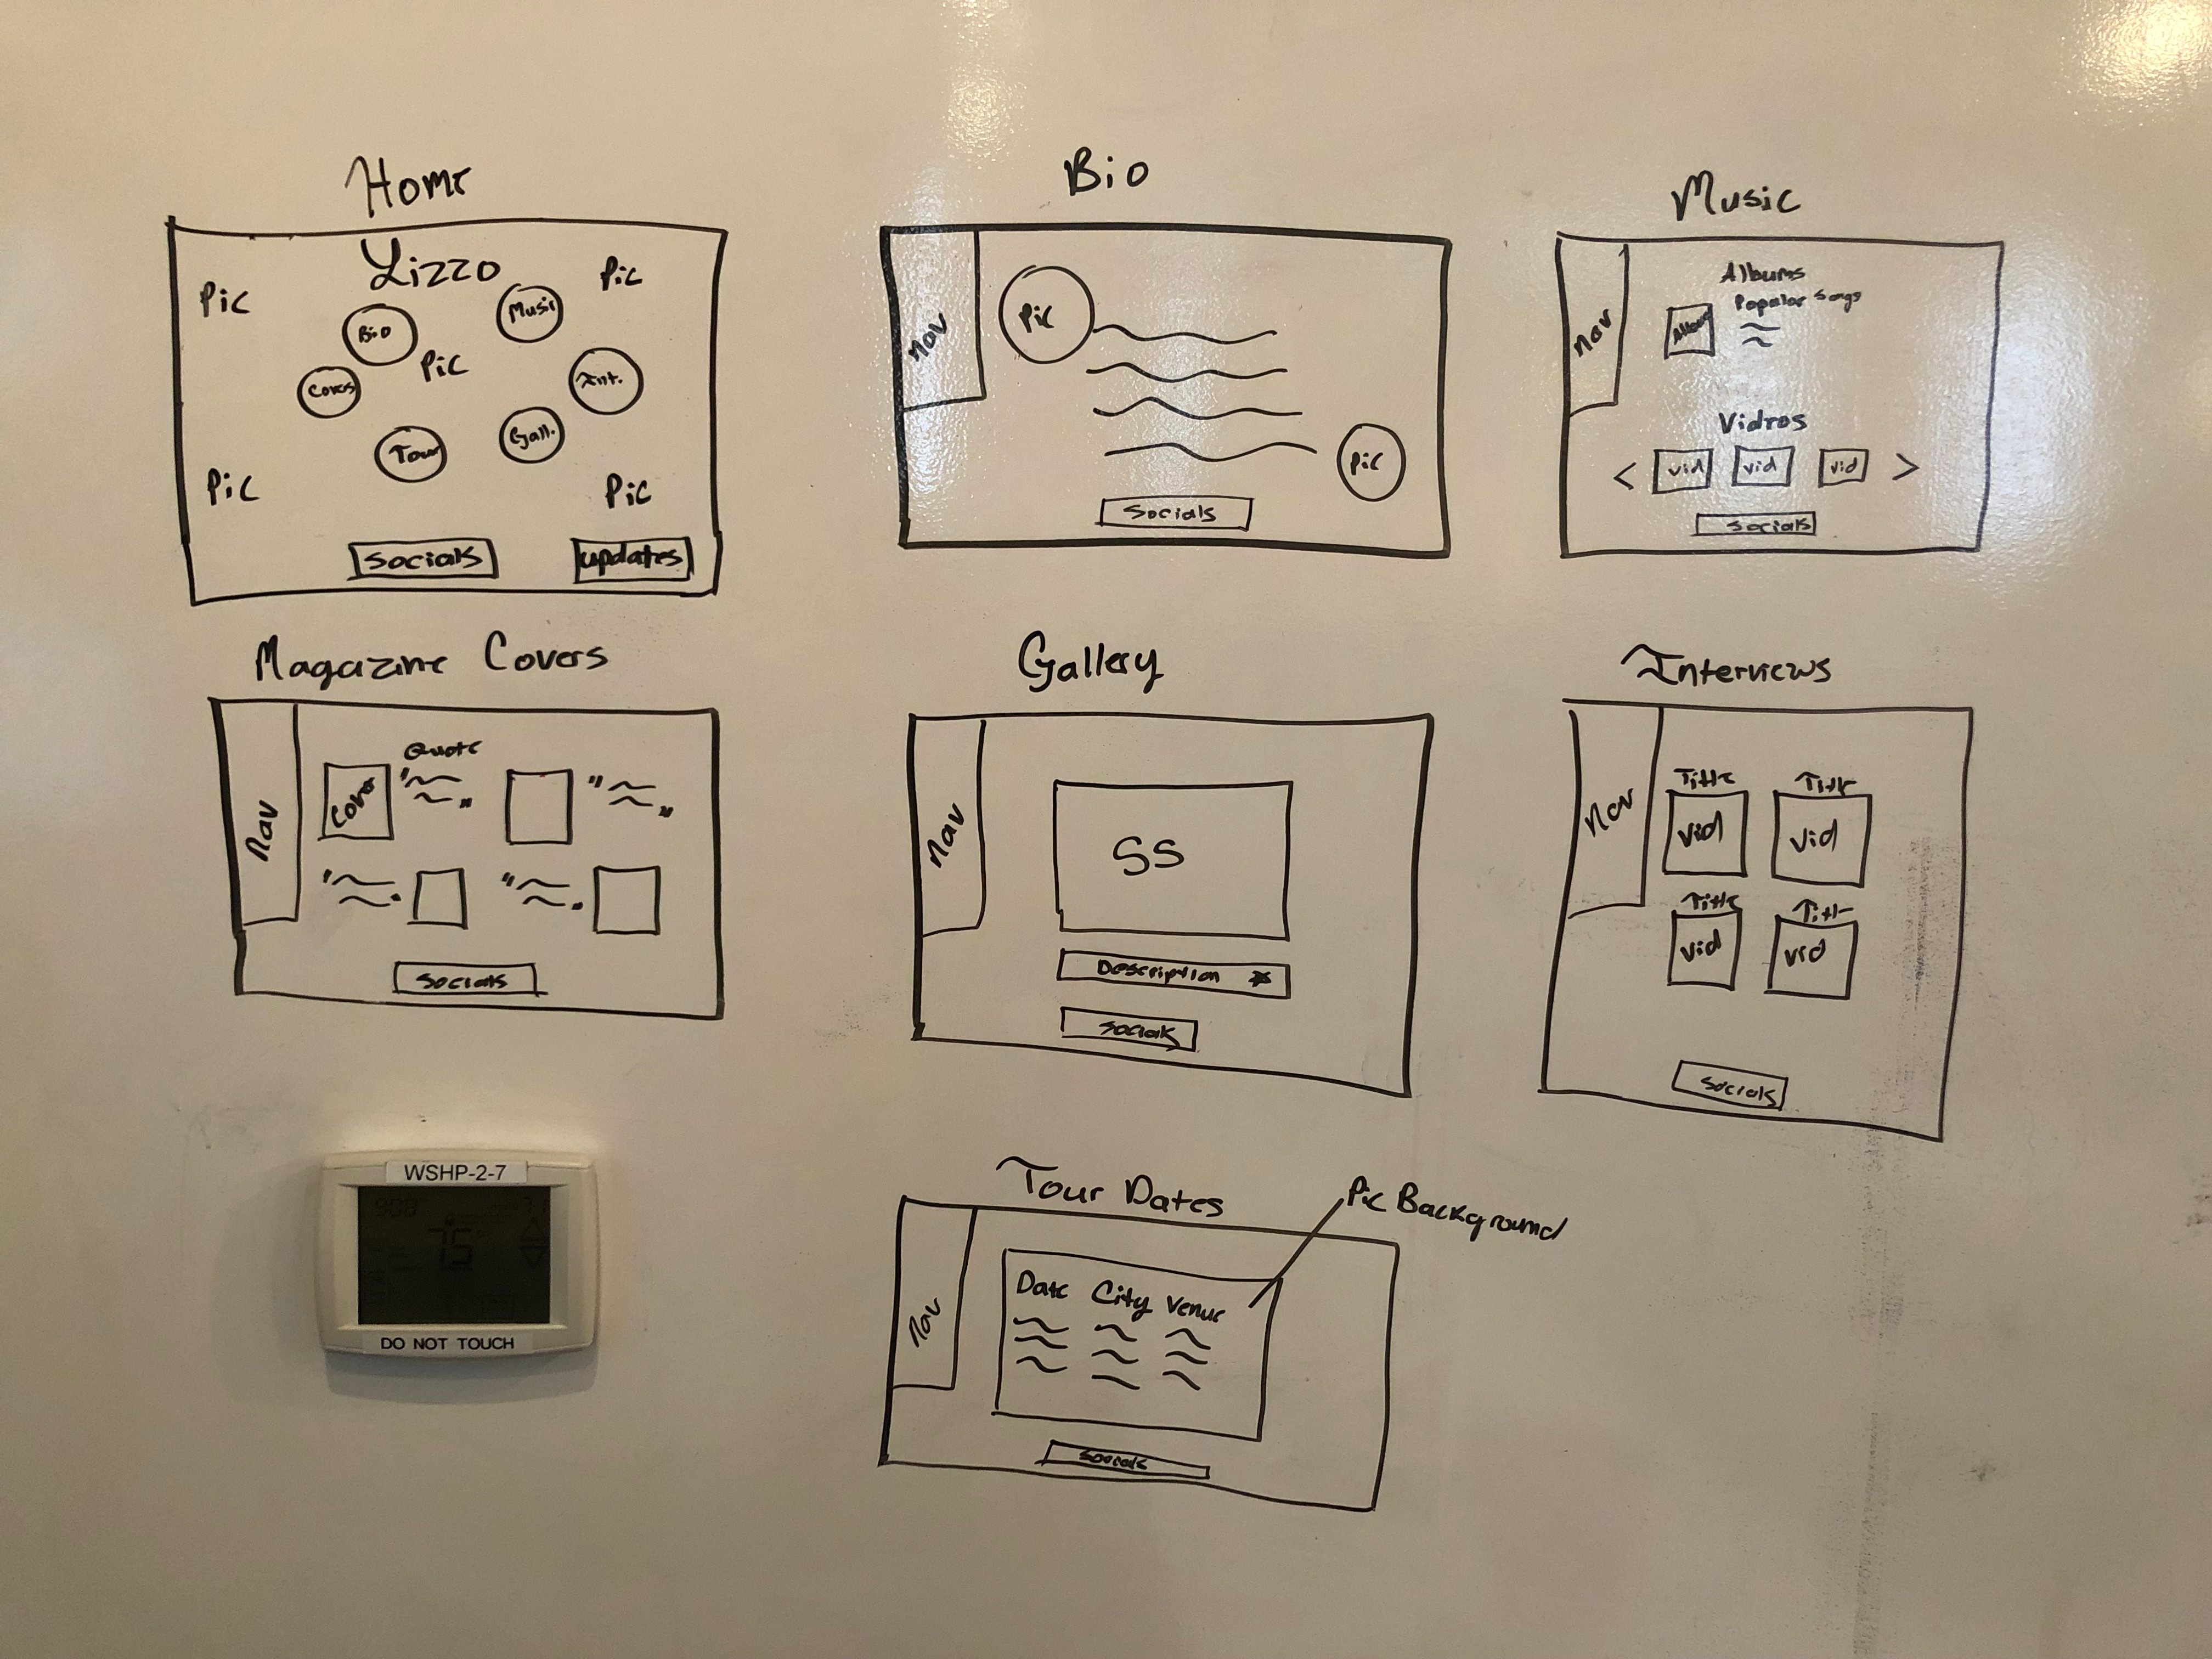 Home
Lizzo
Pic
Pic
Bio
Music
Pic
Covers
Int.
Tour
Gall.
Pic
Pic
Socials
updates
Bio
Nav
Pic
Pic
Socials
Music
Nav
Albums
Popular Songs
Album
Videos
< vid vid vid >
Socials
Magazine Covers
Nav
Quote
Cover
Socials
Gallery
Nav
SS
Description *
Socials
Interviews
Nav
Title Title
Vid Vid
Title Title
Vid Vid
Socials
WSHP-2-7
75
DO NOT TOUCH
Tour Dates
Pic Background
Nav
Date City Venue
Socials